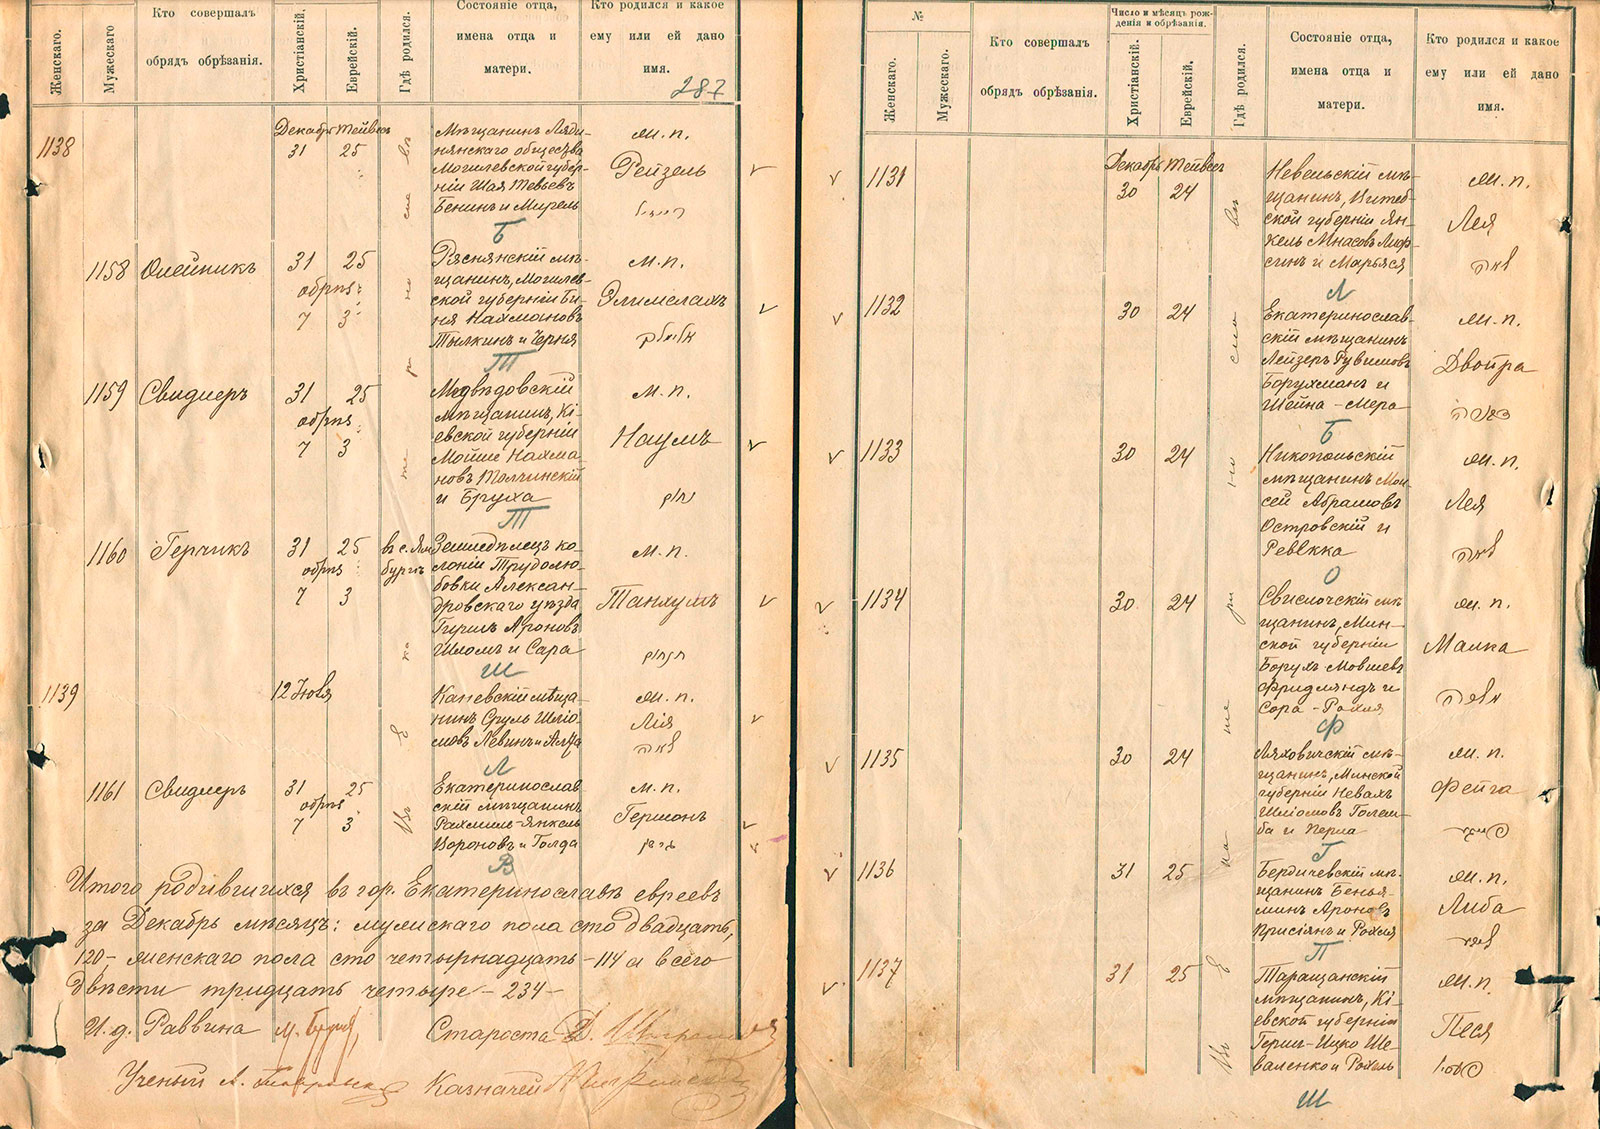 Женскаго.
Мужескаго
Кто совершалъ
обрядъ обрѣзанія.
Христіанскій.
Еврейскій.
Гдѣ родился.
Состояніе отца,
имена отца и
матери.
Кто родился и какое
ему или ей дано
имя.
287
1138
Декабрь Тейвесъ
31 25
Мѣщанинъ Ляди-
нянскаго общества
Могилевской губер-
ніи Шая Тевьевъ
Бенинъ и Мирель
Б
ж. п.
Рейзель
1158 Олейникъ
31 25
обрѣз:
7 3
Ряснянскій мѣ-
щанинъ, Могилев-
ской губерніи Би-
ня Нахмановъ
Тылкинъ и Черня
Т
м. п.
Элимелахъ
1159 Свидлеръ
31 25
обрѣз
7 3
Медвѣдовскій
мѣщанинъ, Кі-
евской губерніи
Мойше Нахма-
новъ Толчинскій
и Бруха
Т
м. п.
Наумъ
נחום
1160 Герчикъ
31 25
обрѣз
7 3
въ с. Ям
бургъ
Земледѣлецъ ко-
лоніи Трудолю-
бовки Алексан-
дровскаго уѣзда
Гиршъ Ароновъ
Шломъ и Сара
Ш
м. п.
Танхумъ
תנחום
1139
12 Іюля
Каневскій мѣща-
нинъ Сруль Шліо-
мовъ Левинъ и
Л
ж. п.
Лія
לאה
1161 Свидлеръ
31 25
обрѣз
7 3
Екатеринослав
скій мѣщанинъ
Рахмиль-Янкель
Вороновъ и Голда
В
м. п.
Гершонъ
גרשון
Итого родившихся въ гор. Екатеринославѣ евреевъ
за Декабрь мѣсяцъ: мужескаго пола сто двадцать,
120 – женскаго пола сто четырнадцать – 114 а всего
двѣсти тридцать четыре – 234 –
И. д. Раввина
Староста
Ученый
Казначей
№
Женскаго.
Мужескаго.
Кто совершалъ
обрядъ обрѣзанія.
Число и мѣсяцъ рож-
денія и обрѣзанія.
Христіанскій.
Еврейскій.
Гдѣ родился.
Состояніе отца,
имена отца и
матери.
Кто родился и какое
ему или ей дано
имя.
1131
Декабрь Тейвесъ
30 24
Невельскій мѣ-
щанинъ, Витеб-
ской губерніи Ян-
кель Мнасовъ Лиор-
синъ и Марьяся
Л
ж. п.
Лея
לאה
1132
30 24
Екатеринослав-
скій мѣщанинъ
Лейзеръ Рувимовъ
Борухманъ и
Шейна-Мера
Б
ж. п.
Двойра
דבורה
1133
30 24
Никопольскій
мѣщанинъ Мои
сей Абрамовъ
Островскій и
Ревекка
О
ж. п.
Лея
לאה
1134
30 24
Свислочскій мѣ
щанинъ, Мин-
ской губерніи
Борухъ Мовшевъ
Фридляндъ и
Сора-Рохля
Ф
ж. п.
Малка
מלכה
1135
30 24
Ляховичскій мѣ-
щанинъ, Минской
губерніи Невахъ
Шліомовъ Голем-
ба и Перла
Г
ж. п.
Фейга
1136
31 25
Бердичевскій мѣ-
щанинъ Бенья-
минъ Ароновъ
Присіянъ и Рохля
П
ж. п.
Либа
1137
31 25
Таращанскій
мѣщанинъ, Кі-
евской губерніи
Гершъ-Ицко Ше-
валенко и Рохль
Ш
ж. п.
Песя